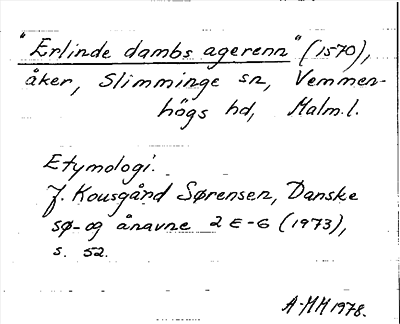 "Erlinde dambs agerenn" (1570),
åker, Slimminge sn, Vemmen-
högs hd, Malm.l.
Etymologi.
J. Kousgård Sørensen, Danske
sø- og ånavne 2 E-G (1973),
s. 52.
A-MM 1978.